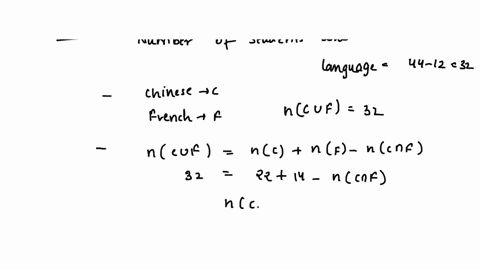 Number of students
language = 44-12 = 32
- Chinese → C
French → F
n(CUF) = 32
- n(CUF) = n(C) + n(F) - n(C∩F)
32 = 22 + 14 - n(C∩F)
n(C.